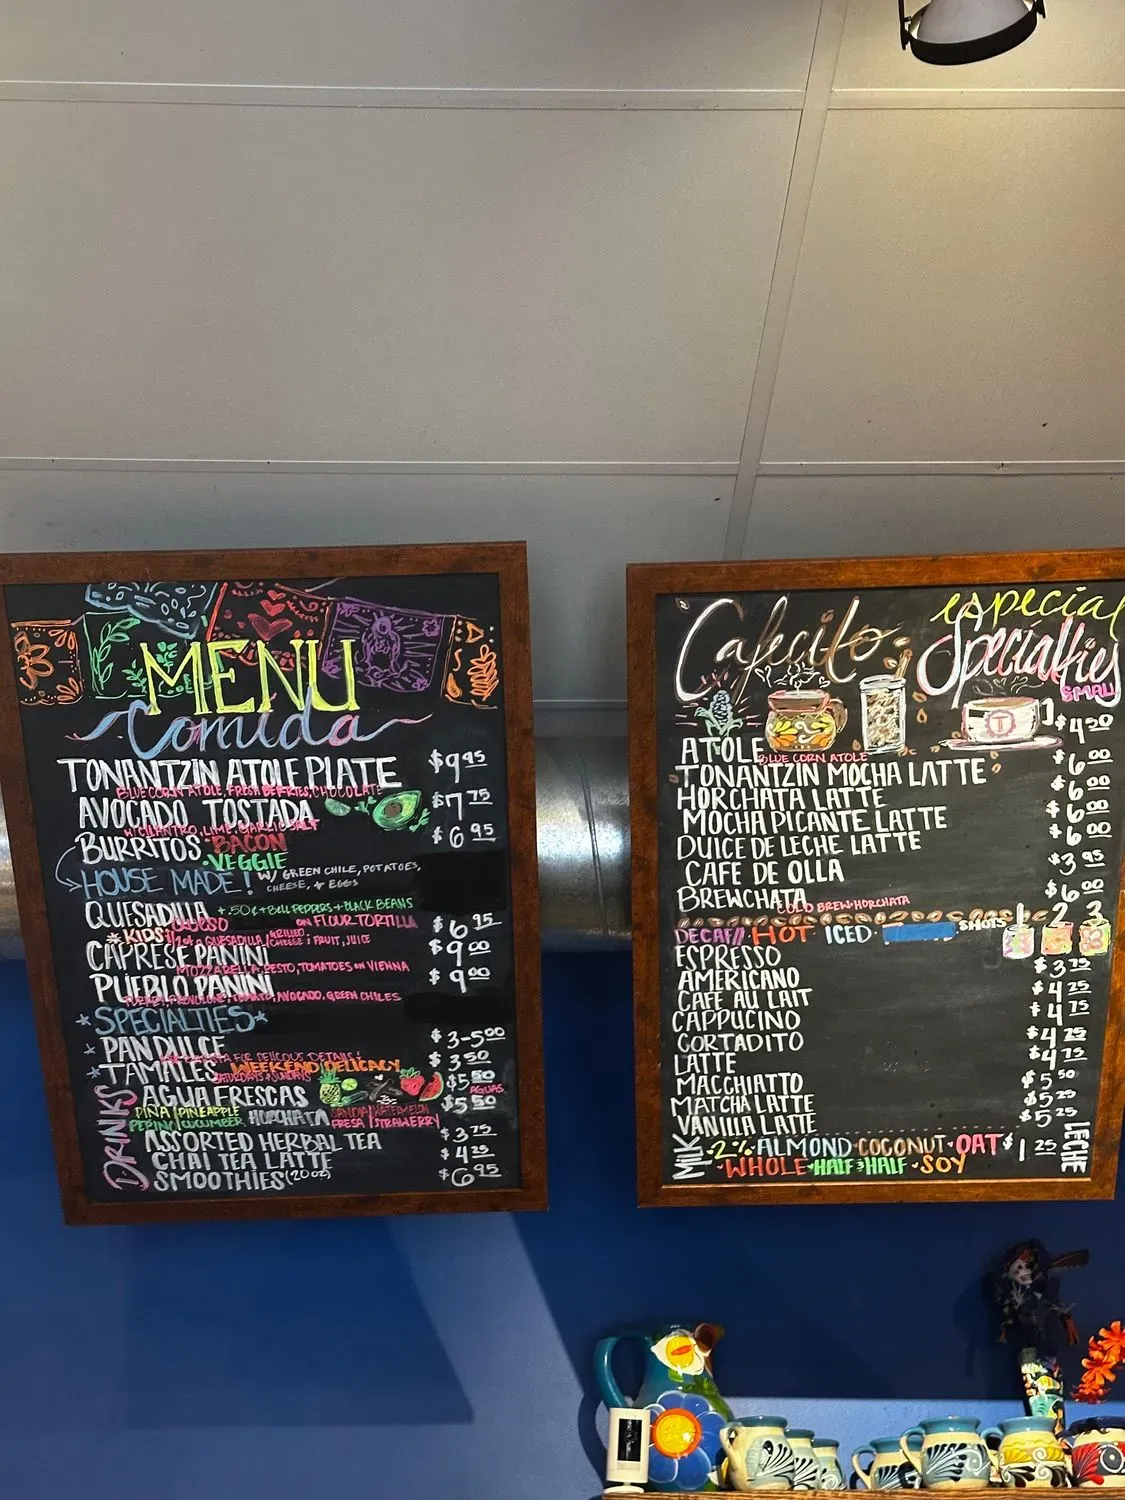 MENU
Comida
TONANTZIN ATOLE PLATE $9.95
BLUE CORN ATOLE, FRESH BERRIES, CHOCOLATE
AVOCADO TOSTADA $7.75
W/ CILANTRO, LIME, GARLIC SALT
BURRITOS • BACON $6.95
• VEGGIE
HOUSE MADE! W/ GREEN CHILE, POTATOES,
CHEESE, + EGGS
QUESADILLA + .50¢ + BELL PEPPERS + BLACK BEANS
QUESO ON FLOUR TORTILLA $6.95
*KIDS! 1/2 of a QUESADILLA/ GRILLED CHEESE & FRUIT, JUICE
CAPRESE PANINI $9.00
MOZZARELLA, PESTO, TOMATOES on VIENNA
PUEBLO PANINI $9.00
TURKEY, PROVOLONE, TOMATO, AVOCADO, GREEN CHILES
*SPECIALTIES*
PAN DULCE $3-5.00
FOR DELICIOUS DETAILS!
*TAMALES WEEKEND DELICACY $3.50
SATURDAYS & SUNDAYS
DRINKS
AGUA FRESCAS $5.50
AGUAS
PIÑA | PINEAPPLE HORCHATA SANDIA | WATERMELON $5.50
PEPINO | CUCUMBER FRESA | STRAWBERRY
ASSORTED HERBAL TEA $3.75
CHAI TEA LATTE $4.25
SMOOTHIES (20oz) $6.95
Cafecito especial
Specialties
SMALL
T
ATOLE $4.50
BLUE CORN ATOLE
TONANTZIN MOCHA LATTE $6.00
HORCHATA LATTE $6.00
MOCHA PICANTE LATTE $6.00
DULCE DE LECHE LATTE $6.00
CAFE DE OLLA $3.95
BREWCHATA $6.00
COLD BREW + HORCHATA
DECAF// HOT ICED SHOTS 2 3
ESPRESSO $3.75
AMERICANO $4.25
CAFE AU LAIT $4.75
CAPPUCINO $4.25
CORTADITO $4.75
LATTE
MACCHIATTO $5.50
MATCHA LATTE $5.25
VANILLA LATTE $5.25
MILK • 2% • ALMOND • COCONUT • OAT $1.25 LECHE
• WHOLE • HALF & HALF • SOY